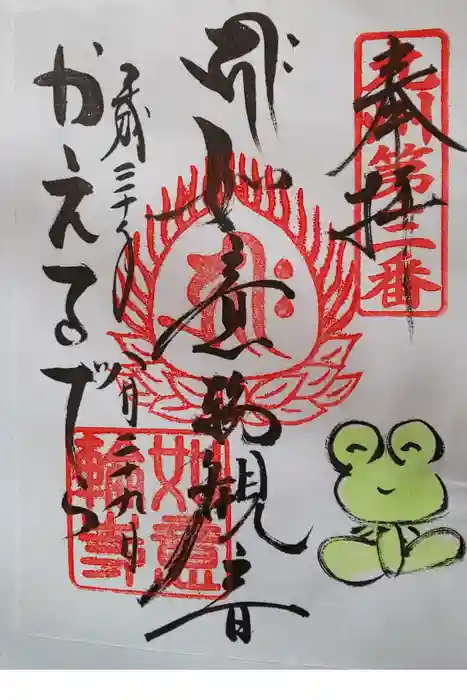 奉拝
九州第三番
如意輪観音
平成三十年 八月二十九日
かえるでら
如意
輪寺